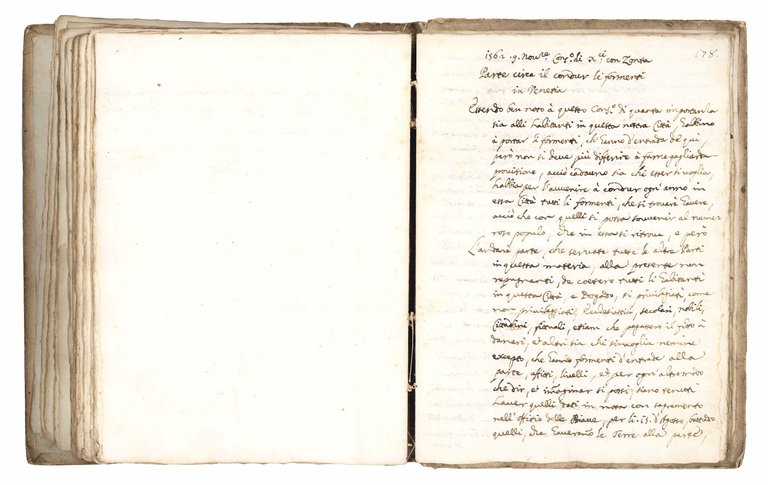 178.
1562. 9. Nou.re Cons.o di X.ci con Zonta
Parte circa il condur li formenti
in Venetia
Essendo ben noto à questo Cons.o di quanta importanza
sia alli habitanti in questa nostra Città, l'obligo
à portar li formenti, ch'hanno d'entrada de qui,
però non si deve più differire à farne gagliarda
provisione, acciò cadauno sia chi esser si voglia,
habbia per l'avvenire à condur ogn'anno in
essa Città tutti li formenti, che si trovarà havere,
acciò che con quelli si possa souvenir al nume
roso populo, che in essa si ritrova, e però
L'andarà parte, che servate tutte le altre Parti
in questa materia, alla presente non
repugnanti, de coetero tutti li habitanti
in questa Città, e Dogado, sì privilegiati, come
non privilegiati, Ecclesiastici, secolari, nobili,
Cittadini, fittuali, etiam che pagassero il fitto à
danari, et altri sia chi si voglia nemine
excepto, che hanno formenti d'entrade alla
parte, affitti, livelli, et per ogn'altro modo
che dir, et imaginar si possi, siano tenuti
haver quelli dati in nota con sagramento
nell'offitio delle Biave, per li 15. d'Agosto,
quelli, che haveranno le Terre alla parte,